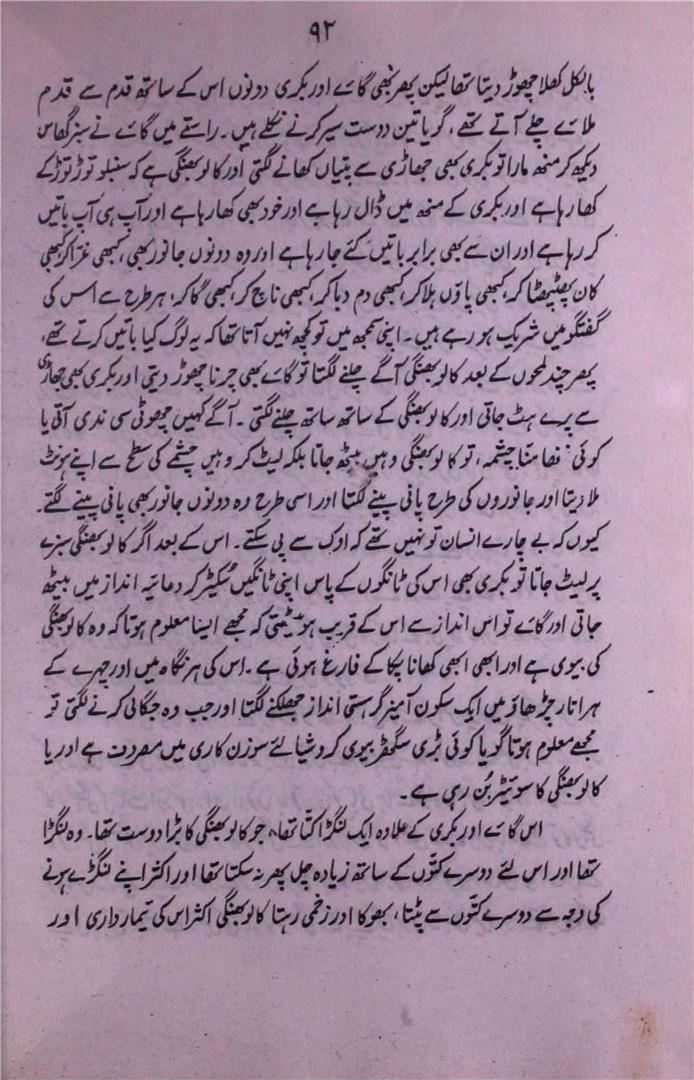 ۹۲
بالکل کھلا چھوڑ دیتا تھا لیکن پھر بھی گائے اور بکری دونوں اس کے ساتھ قدم سے قدم
ملائے چلے آتے تھے، گویا تین دوست سیر کرنے نکلے ہیں۔ راستے میں گائے نے سبز گھاس
دیکھ کر منھ مارا تو بکری بھی جھاڑی سے پتیاں کھانے لگتی اور کالو بھنگی ہے کہ سنبلو توڑ توڑ کے
کھا رہا ہے اور بکری کے منھ میں ڈال رہا ہے اور خود بھی کھا رہا ہے اور آپ ہی آپ باتیں
کر رہا ہے اور ان سے بھی برابر باتیں کئے جا رہا ہے اور وہ دونوں جانور بھی، کبھی غرّا کر کبھی
کان پھٹپھٹا کر، کبھی پاؤں ہلا کر، کبھی دم دبا کر، کبھی ناچ کر، کبھی گا کر، ہر طرح سے اس کی
گفتگو میں شریک ہو رہے ہیں۔ اپنی سمجھ میں تو کچھ نہیں آتا تھا کہ یہ لوگ کیا باتیں کرتے تھے،
پھر چند لمحوں کے بعد کالو بھنگی آگے چلنے لگتا تو گائے بھی چرنا چھوڑ دیتی اور بکری بھی جھاڑی
سے پرے ہٹ جاتی اور کالو بھنگی کے ساتھ ساتھ چلنے لگتی۔ آگے کہیں چھوٹی سی ندی آتی یا
کوئی ننھا منّا چشمہ، تو کالو بھنگی وہیں بیٹھ جاتا بلکہ لیٹ کر وہیں چشمے کی سطح سے اپنے ہونٹ
ملا دیتا اور جانوروں کی طرح پانی پینے لگتا اور اسی طرح وہ دونوں جانور بھی پانی پینے لگتے۔
کیوں کہ بے چارے انسان تو نہیں تھے کہ اوک سے پی سکتے۔ اس کے بعد اگر کالو بھنگی سبزے
پر لیٹ جاتا تو بکری بھی اس کی ٹانگوں کے پاس اپنی ٹانگیں سُکیڑ کر دعائیہ انداز میں بیٹھ
جاتی اور گائے تو اس انداز سے اس کے قریب ہو بیٹھتی کہ مجھے ایسا معلوم ہوتا کہ وہ کالو بھنگی
کی بیوی ہے اور ابھی ابھی کھانا پکا کے فارغ ہوئی ہے۔ اس کی ہر نگاہ میں اور چہرے کے
ہر اتار چڑھاؤ میں ایک سکون آمیز گرہستی انداز جھلکنے لگتا اور جب وہ جگالی کرنے لگتی تو
مجھے معلوم ہوتا گویا کوئی بڑی سگھڑ بیوی کروشیا لئے سوزن کاری میں مصروف ہے اور یا
کالو بھنگی کا سوئیٹر بُن رہی ہے۔
اس گائے اور بکری کے علاوہ ایک لنگڑا کتا تھا، جو کالو بھنگی کا بڑا دوست تھا۔ وہ لنگڑا
تھا اور اس لئے دوسرے کتّوں کے ساتھ زیادہ چل پھر نہ سکتا تھا اور اکثر اپنے لنگڑے ہونے
کی وجہ سے دوسرے کتّوں سے پٹتا، بھوکا اور زخمی رہتا کالو بھنگی اکثر اس کی تیمار داری اور